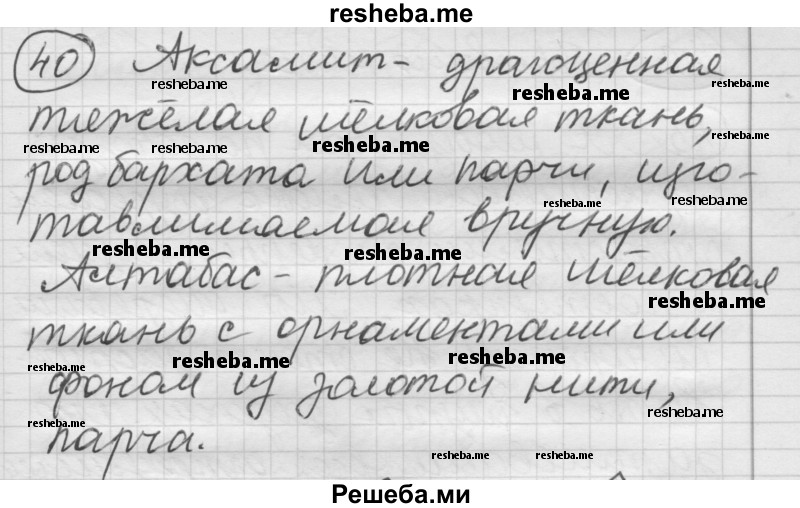 resheba.me
40 Аксамит - драгоценная
resheba.me resheba.me resheba.me
тяжёлая шёлковая ткань,
resheba.me resheba.me resheba.me resheba.me
род бархата или парчи, изго-
resheba.me resheba.me
тавливаемая вручную.
resheba.me resheba.me
Алтабас - плотная шёлковая
resheba.me
ткань с орнаментами или
resheba.me resheba.me resheba.me
фоном из золотой нити,
resheba.me resheba.me
парча.
resheba.me resheba.me
Решеба.ми